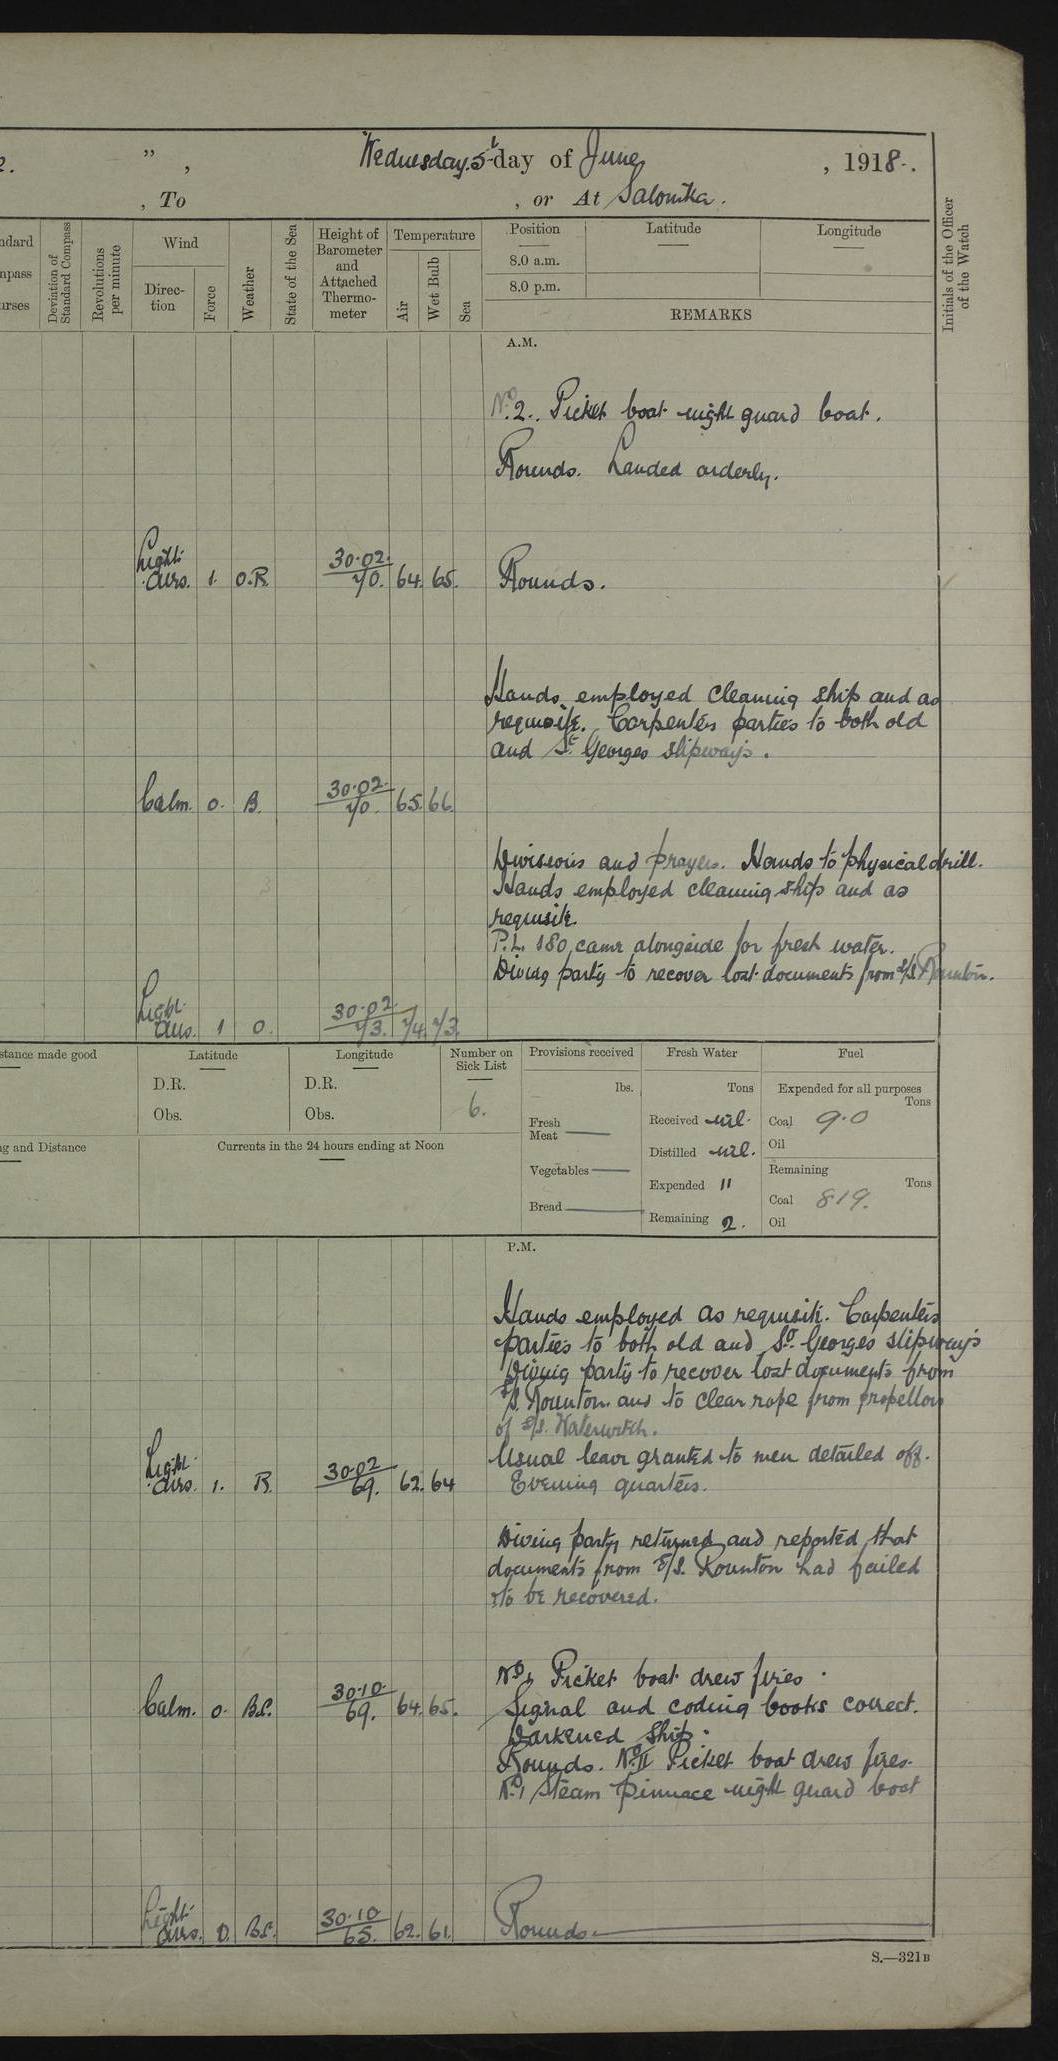 " , Wednesday 5th day of June , 1918.
, To , or At Salonika.
Standard Compass Courses
Deviation of Standard Compass
Revolutions per minute
Wind
Direction
Force
Weather
State of the Sea
Height of Barometer and Attached Thermometer
Temperature
Air
Wet Bulb
Sea
Position
Latitude
Longitude
8.0 a.m.
8.0 p.m.
REMARKS
Initials of the Officer of the Watch
A.M.
No. 2. Picket boat night guard boat.
Rounds. Landed orderly.
Light airs. 1. O.R. 30.02. 70. 64. 65. Rounds.
Hands employed cleaning ship and as
requisite. Carpenters parties to both old
and St Georges slipways.
Calm. 0. B. 30.02. 70. 65. 66.
Divisions and prayers. Hands to physical drill.
Hands employed cleaning ship and as
requisite.
P.L. 180 came alongside for fresh water.
Diving party to recover lost documents from S/S Rounton.
Light airs. 1 O. 30.02. 73. 74. 73.
Distance made good
Latitude
Longitude
Number on Sick List
Provisions received
Fresh Water
Fuel
D.R.
D.R.
6.
lbs.
Tons
Expended for all purposes
Tons
Obs.
Obs.
Fresh Meat —
Received nil.
Coal 9.0
Oil
Currents in the 24 hours ending at Noon
Distilled nil.
Vegetables —
Remaining
Tons
Expended "
Coal 819.
Bread —
Remaining 2.
Oil
P.M.
Hands employed as requisite. Carpenters
parties to both old and St. Georges slipways
Diving party to recover lost documents from
S/S. Rounton and to clear rope from propellor
of S/S. Waterwitch.
Usual leave granted to men detailed off.
Light airs. 1. B. 30.02 69. 62. 64 Evening quarters.
Diving party returned and reported that
documents from S/S. Rounton had failed
to be recovered.
No. 1 Picket boat drew fires.
Calm. 0. B.C. 30.10. 69. 64. 65. Signal and coding books correct.
Darkened ship.
Rounds. No. II Picket boat drew fires.
No. 1 Steam pinnace night guard boat
Light airs. 0. B.C. 30.10 65. 62. 61. Rounds.
S.—321B